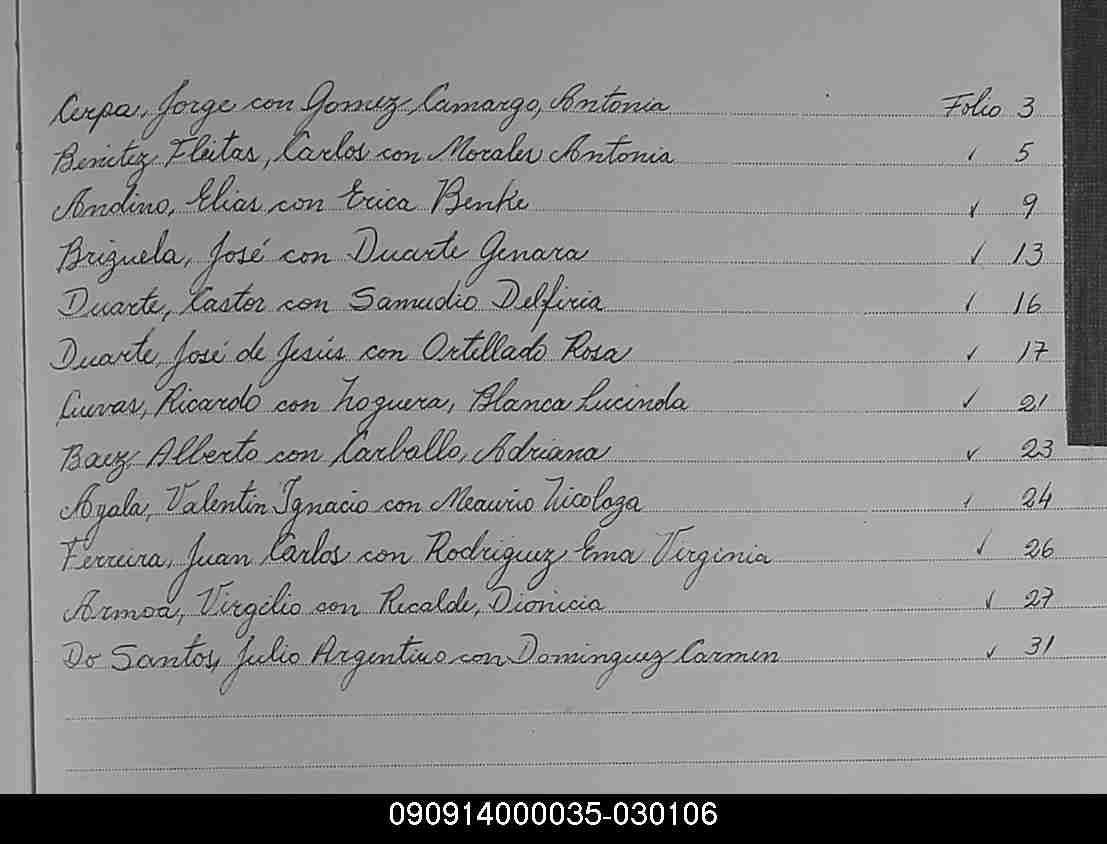 Cerpa, Jorge con Gomez Camargo, Antonia Folio 3
Benitez Fleitas, Carlos con Morales Antonia ✓ 5
Andino, Elias con Erica Benke ✓ 9
Brizuela, José con Duarte Genara ✓ 13
Duarte, Castor con Samudio Delfiria ✓ 16
Duarte, José de Jesús con Ortellado Rosa ✓ 17
Cuvas, Ricardo con Noguera, Blanca Lucinda ✓ 21
Baez, Alberto con Carballo, Adriana ✓ 23
Ayala, Valentin Ignacio con Meaurio Nicolaza ✓ 24
Ferreira, Juan Carlos con Rodriguez Ema Virginia ✓ 26
Armoa, Virgilio con Recalde, Dionicia ✓ 27
Do Santos, Julio Argentino con Dominguez Carmen ✓ 31
090914000035-030106